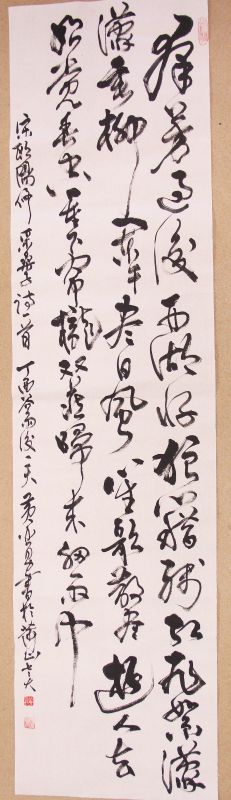 群芳過後西湖好狼籍残紅飛絮濛
濛垂柳闌干尽日風笙歌散尽遊人去
始覚春空垂下帘櫳双燕歸来細雨中
宋欧陽修采桑子詩一首 丁酉谷雨後一天 黄書於山